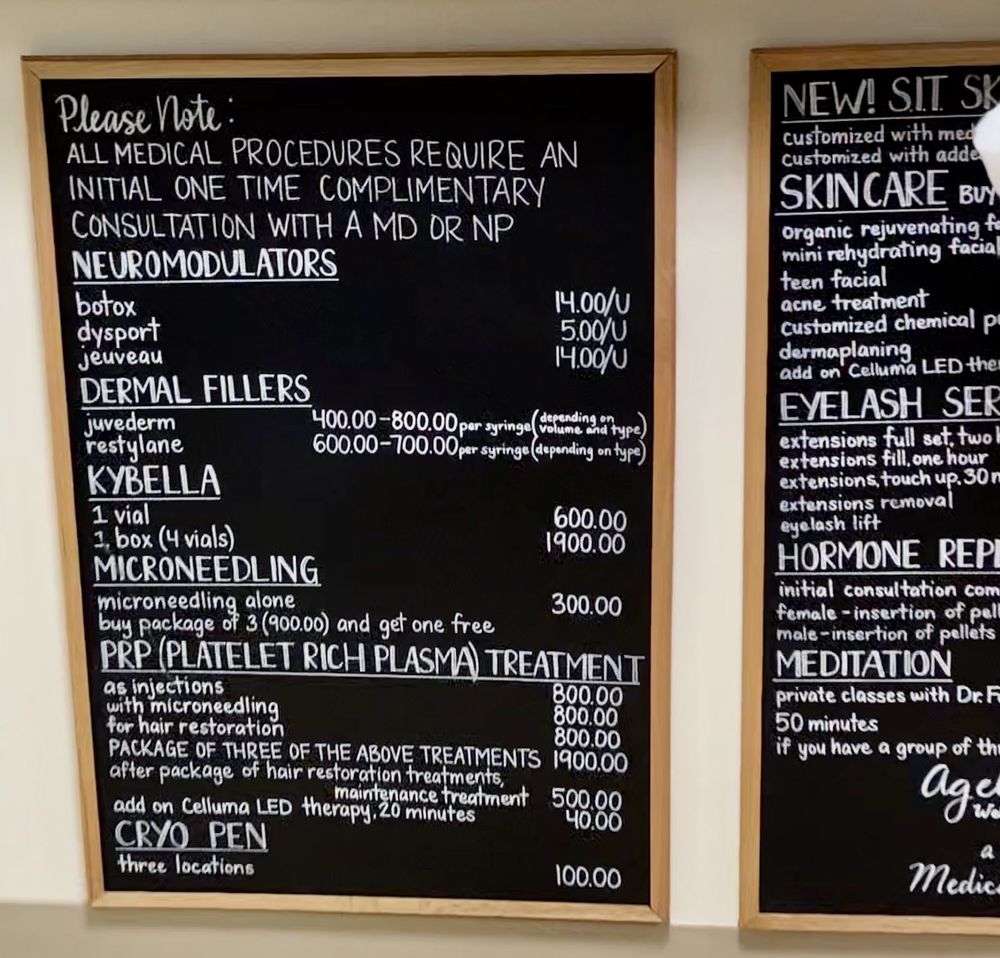 Please Note:
ALL MEDICAL PROCEDURES REQUIRE AN
INITIAL ONE TIME COMPLIMENTARY
CONSULTATION WITH A MD OR NP
NEUROMODULATORS
botox 14.00/U
dysport 5.00/U
jeuveau 14.00/U
DERMAL FILLERS
juvederm 400.00-800.00 per syringe (depending on volume and type)
restylane 600.00-700.00 per syringe (depending on type)
KYBELLA
1 vial 600.00
1 box (4 vials) 1900.00
MICRONEEDLING
microneedling alone 300.00
buy package of 3 (900.00) and get one free
PRP (PLATELET RICH PLASMA) TREATMENT
as injections 800.00
with microneedling 800.00
for hair restoration 800.00
PACKAGE OF THREE OF THE ABOVE TREATMENTS 1900.00
after package of hair restoration treatments,
maintenance treatment 500.00
add on Celluma LED therapy, 20 minutes 40.00
CRYO PEN
three locations 100.00
NEW! S.I.T. SK
customized with med
customized with adde
SKINCARE BUY
organic rejuvenating f
mini rehydrating facia
teen facial
acne treatment
customized chemical p
dermaplaning
add on Celluma LED the
EYELASH SER
extensions full set, two
extensions fill, one hour
extensions, touch up, 30
extensions removal
eyelash lift
HORMONE REP
initial consultation com
female-insertion of pel
male-insertion of pellets
MEDITATION
private classes with Dr.
50 minutes
if you have a group of th
Agel
We
a
Medic